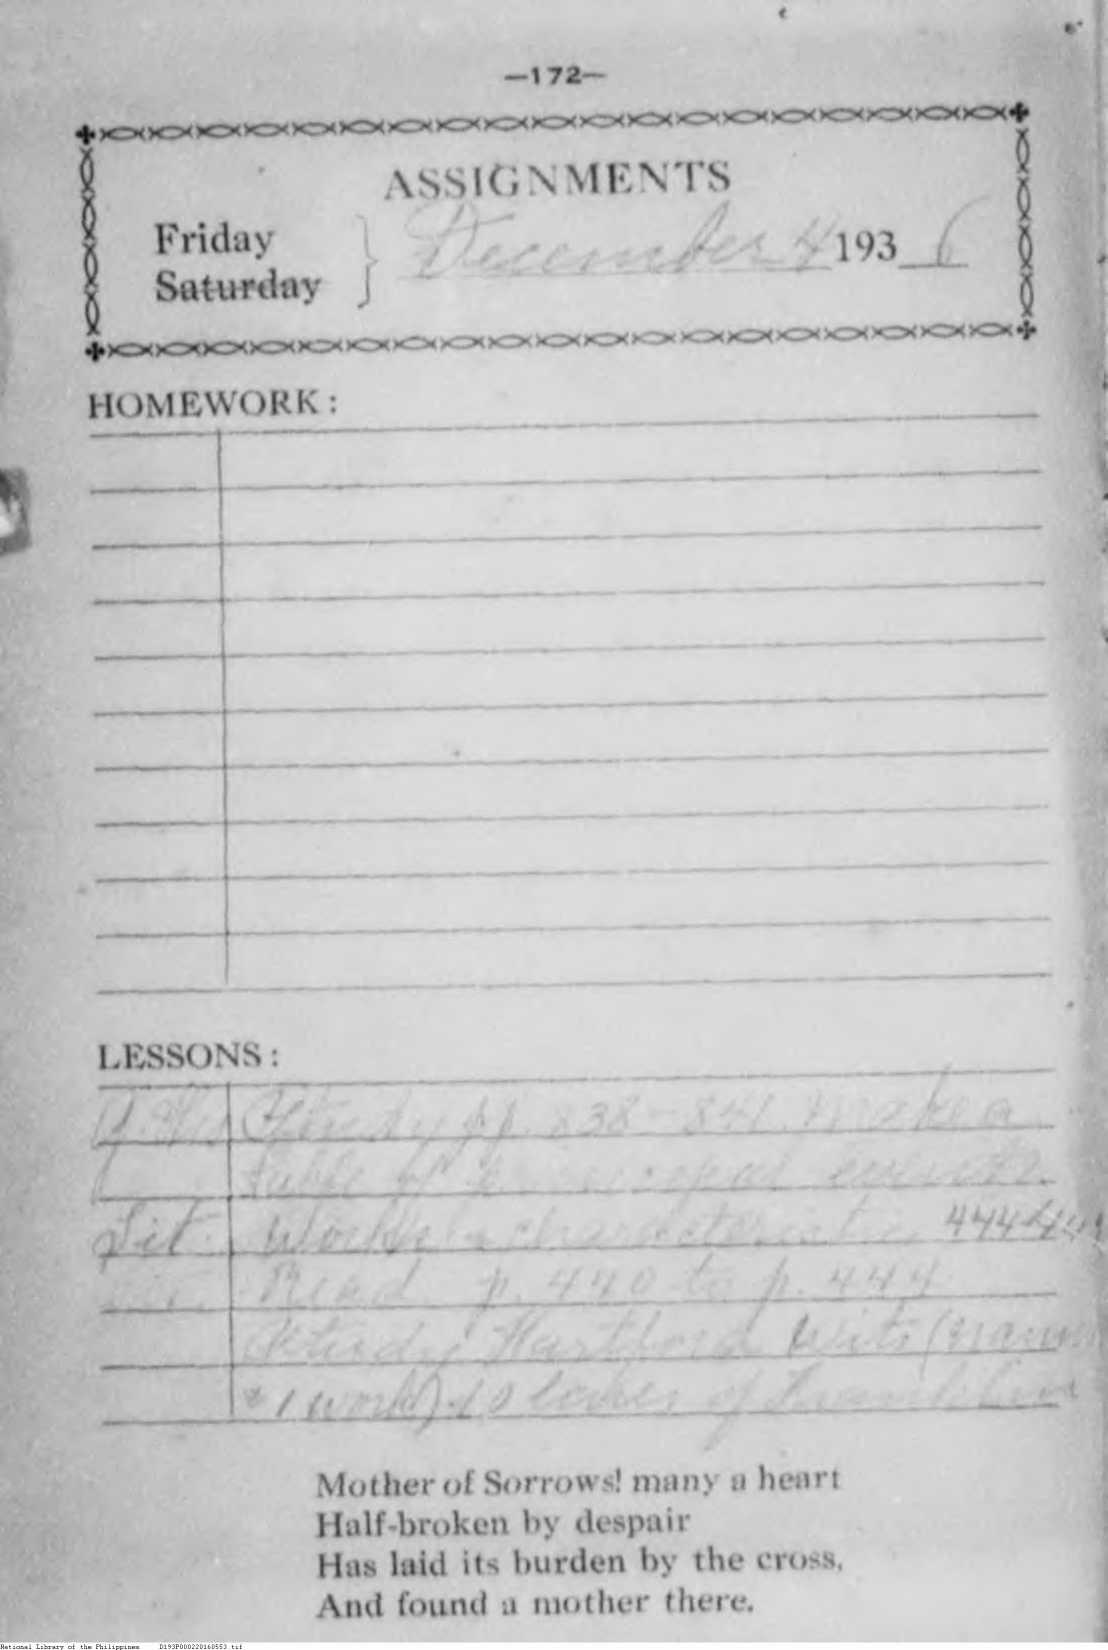 —172—
ASSIGNMENTS
Friday
Saturday
December 4 1936
HOMEWORK :
LESSONS :
Study pp. 838-841. Make a
table of events.
Lit. Works characteristic 444-
Read p. 440 to p. 444
Study Hartford Wits (name
& 1 work) 10 of Franklin
Mother of Sorrows! many a heart
Half-broken by despair
Has laid its burden by the cross,
And found a mother there.
National Library of the Philippines D193P000220160553.tif